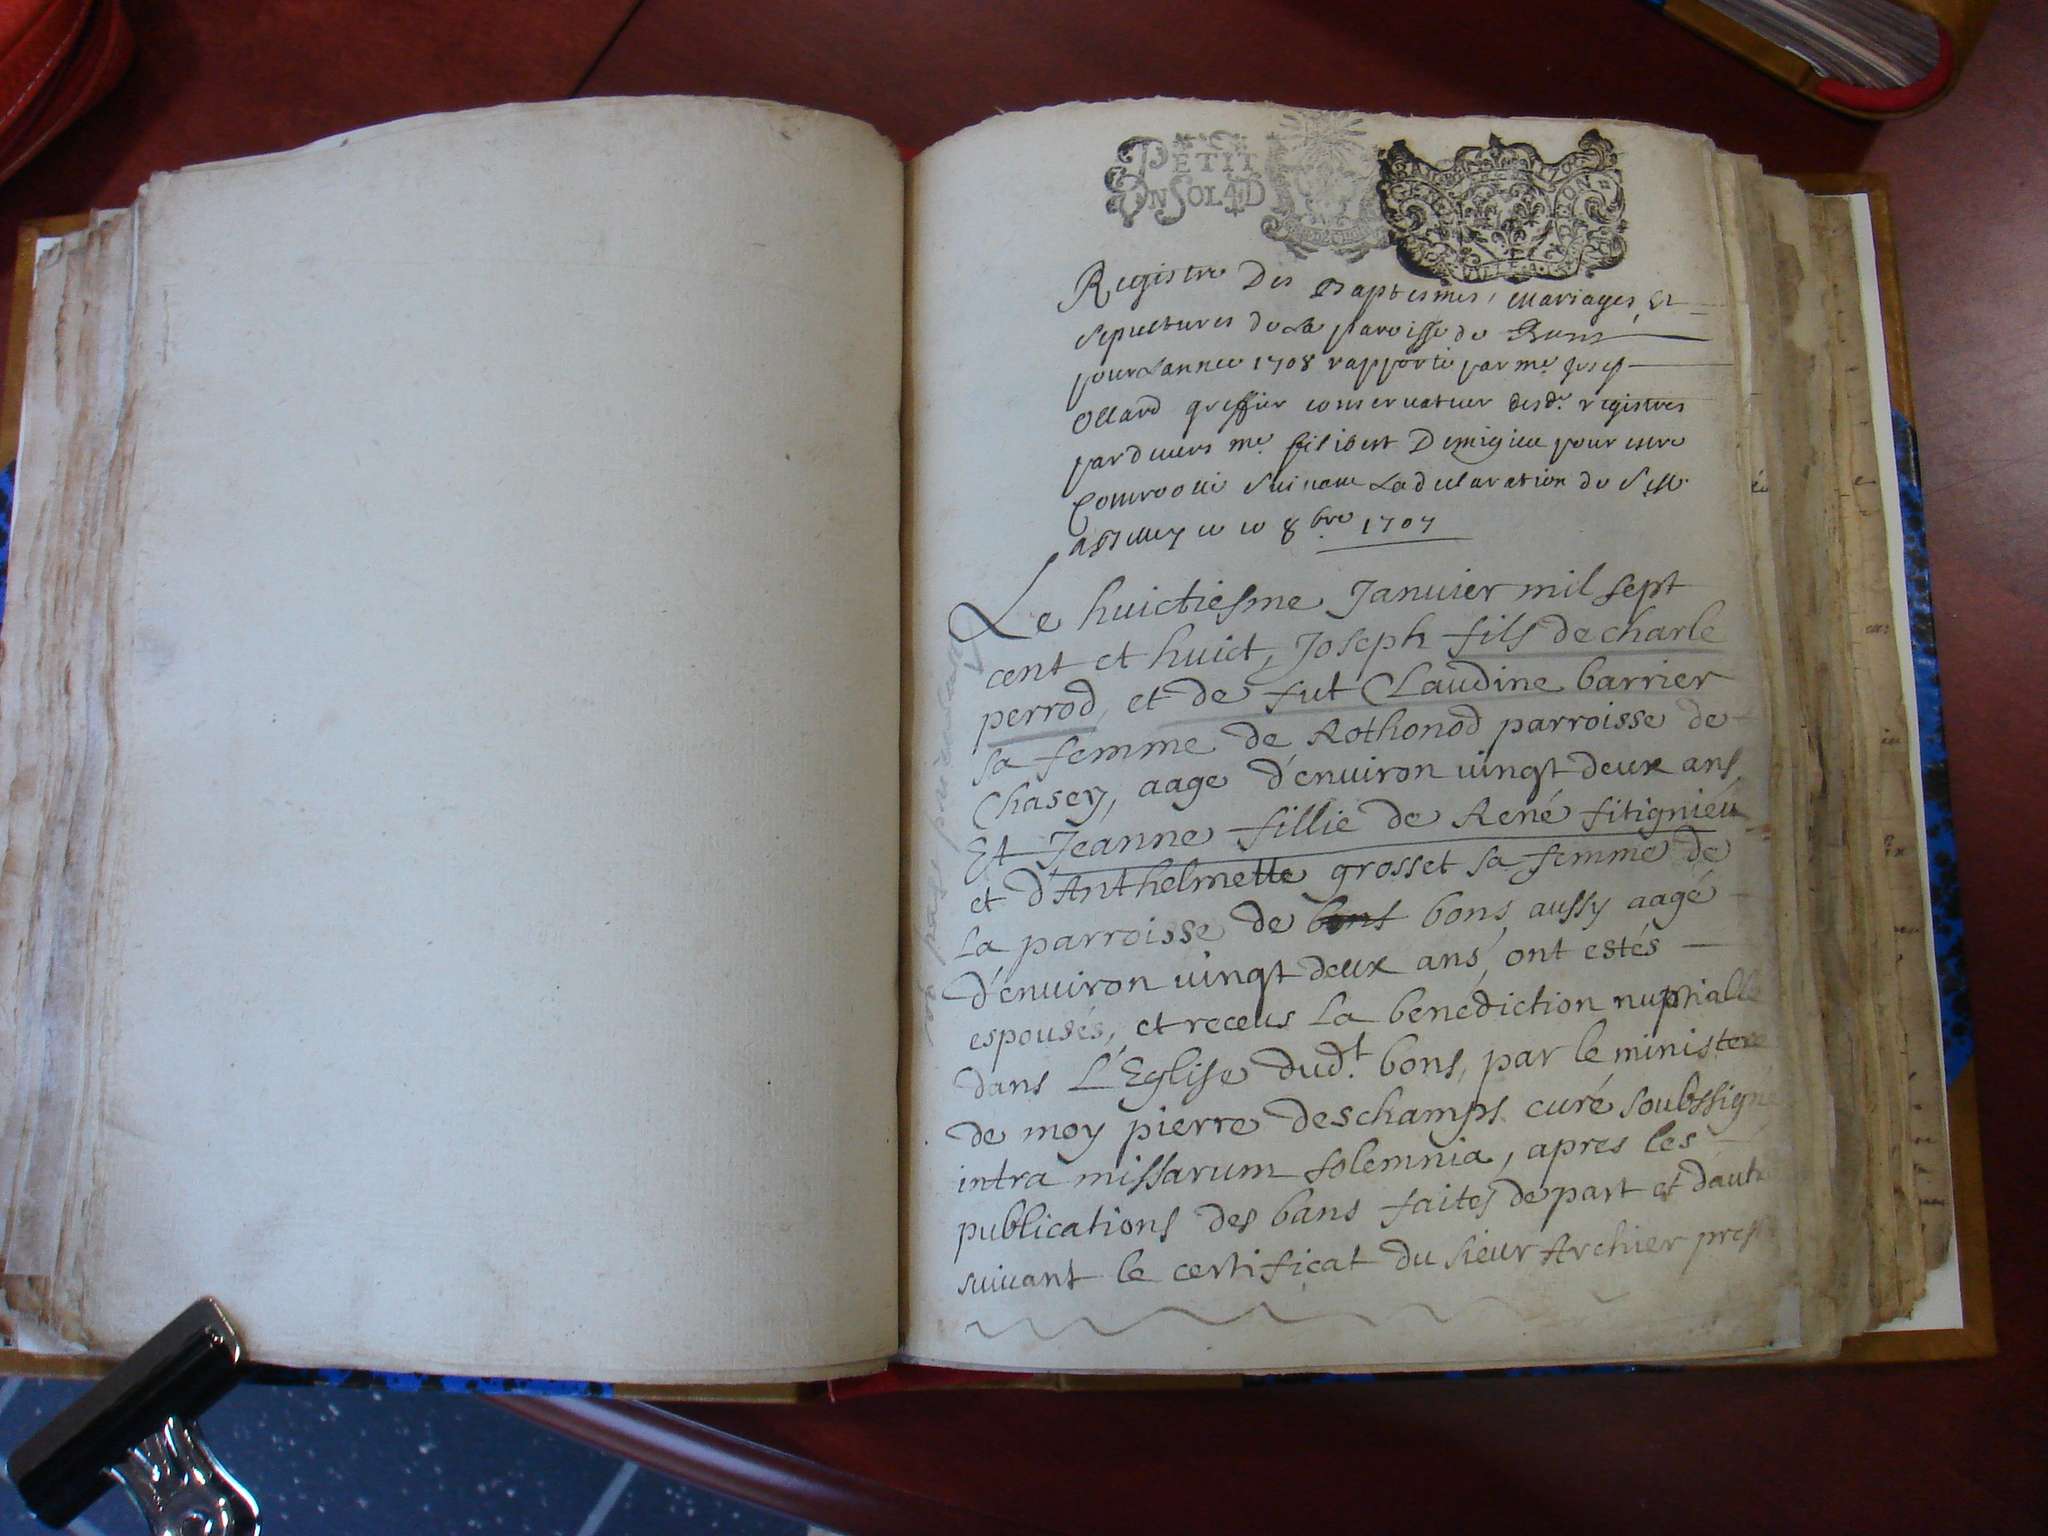 PETIT
UN SOL 4 D
Registre Des Baptesmes, Mariages, Et
sepultures de La parroisse de
pour Lannee 1708 rapporté par me. Joseph
Ollard greffier conservateur desd. registres
pardevers me. filibert Demigieu pour estre
suivant La declaration du
8bre 1707
Le huictiesme Januier mil sept
cent et huict, Joseph fils de charle
perrod, et de fut Claudine barrier
sa femme de Rothonod parroisse de
Chasey, aage d'enuiron uingt deux ans,
Et Jeanne fillie de René fitignieu
et d'Anthelmette grosset sa femme de
La parroisse de bons bons, aussy aagé
d'enuiron uingt deux ans, ont estés
espousés, et receus La benediction nuptialle
dans L'Eglise dud.t bons, par le ministere
de moy pierre deschamps curé soubssigné
intra missarum solemnia, apres les
publications des bans faites de part et d'autre
suiuant le certificat du sieur Archier